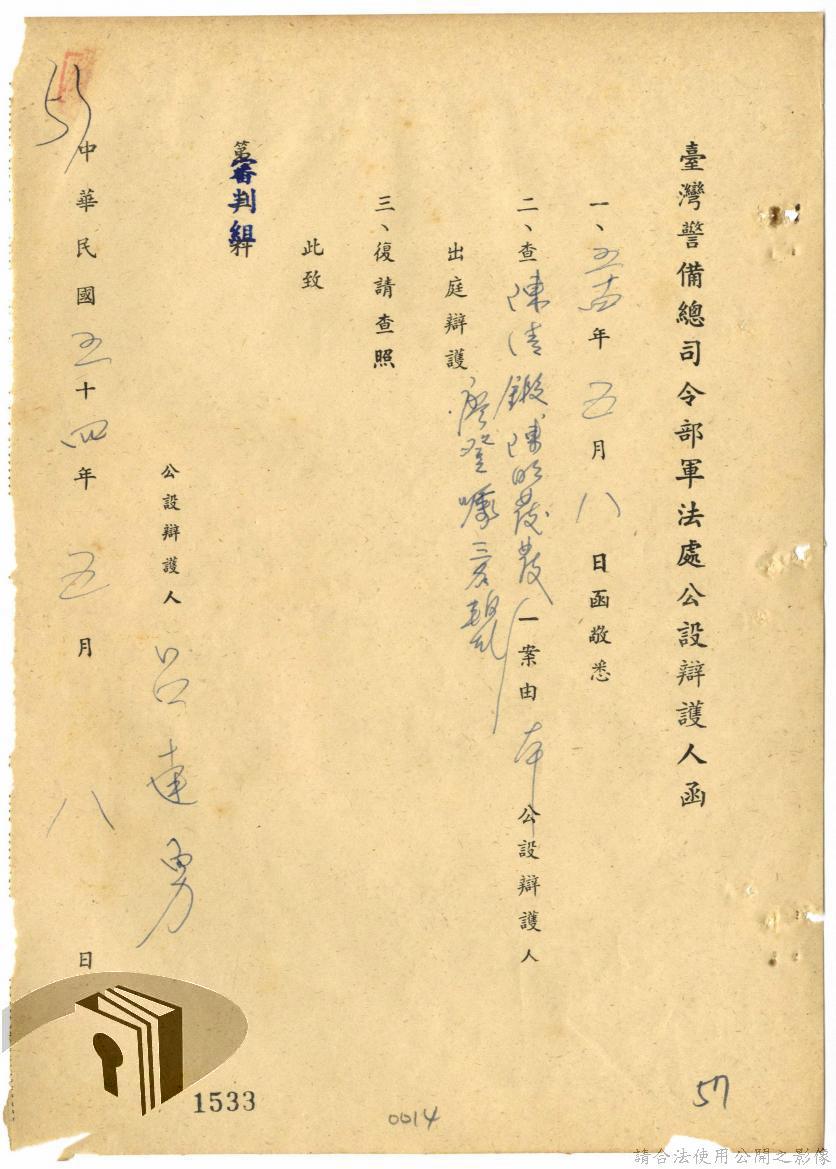 臺灣警備總司令部軍法處公設辯護人函
一、五十四年五月八日函敬悉
二、查陳清鍛陳明發發一案由本公設辯護人
出庭辯護
廖登
三、復請查照
此致
審判組
公設辯護人 呂達勇
中華民國五十四年五月八日
55
57
1533
0014
請合法使用公開之影像